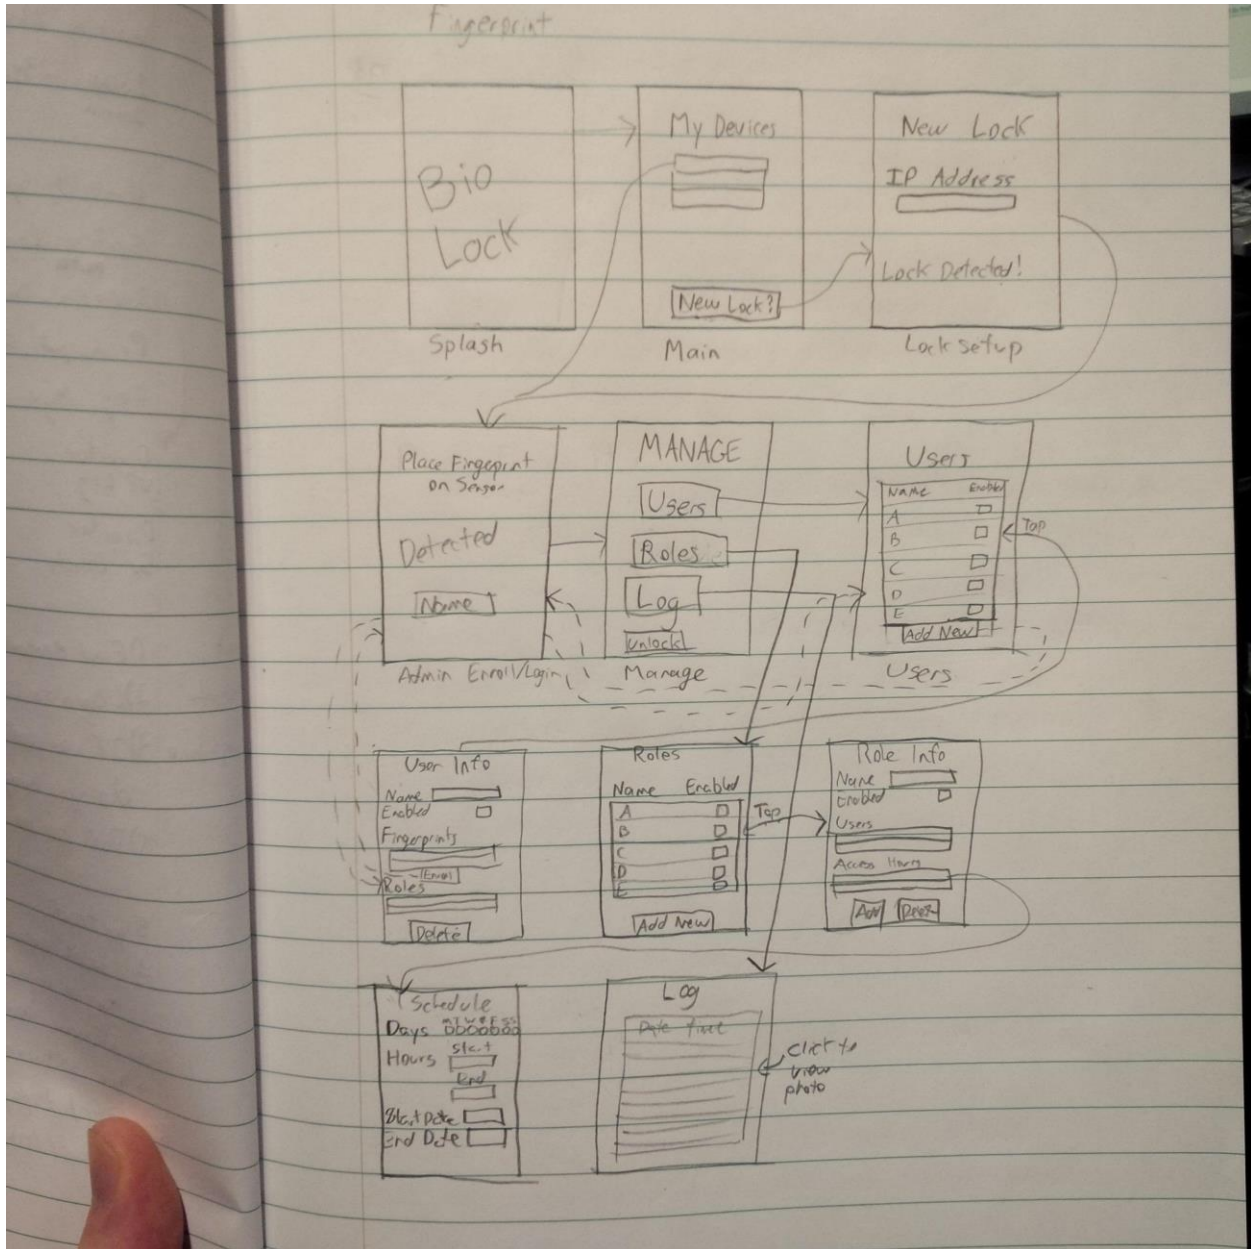 Fingerprint
Bio
Lock
Splash
My Devices
New Lock?
Main
New Lock
IP Address
Lock Detected!
Lock Setup
Place Fingerprint
on Sensor
Detected
Name
Admin Enroll/Login
MANAGE
Users
Roles
Log
Unlock
Manage
Users
Name Enabled
A
B
C
D
E
Add New
Tap
Users
User Info
Name
Enabled
Fingerprints
Enroll
Roles
Delete
Roles
Name Enabled
A
B
C
D
E
Add New
Tap
Role Info
Name
Enabled
Users
Access Hours
Add Delete
Schedule
M T W R F S S
Days
Start
Hours
End
Start Date
End Date
Log
Date Time
Click to
view
photo